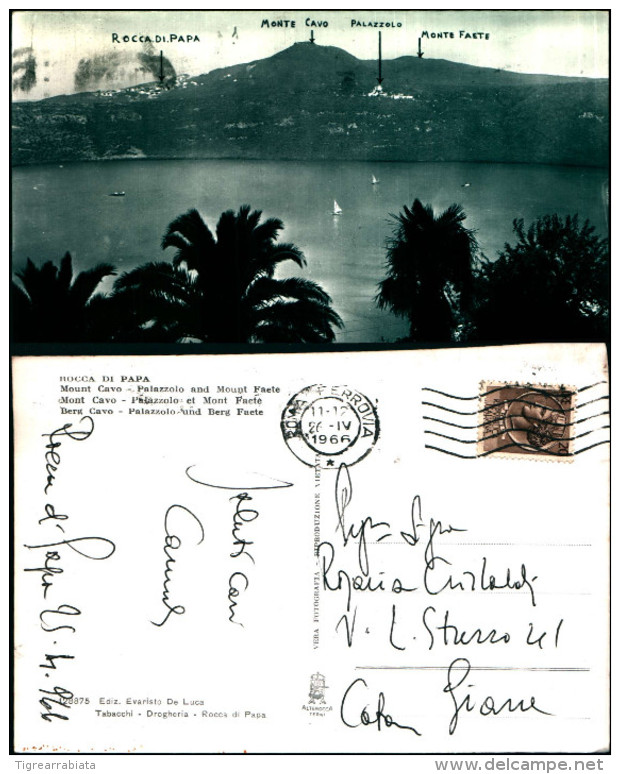 ROCCA DI PAPA
MONTE CAVO
PALAZZOLO
MONTE FAETE
ROCCA DI PAPA
Mount Cavo - Palazzolo and Mount Faete
Mont Cavo - Palazzolo et Mont Faete
Berg Cavo - Palazzolo und Berg Faete
ROMA FERROVIA
11-12
26 -IV
1966
Rocca di Papa 25.4.966
Saluti cari
VERA FOTOGRAFIA - RIPRODUZIONE VIETATA
Rosaria
V. L. Sturzo 241
Giarre
128875 Ediz. Evaristo De Luca
Tabacchi - Drogheria - Rocca di Papa
ALTEROCCA
TERNI
Tigrearrabiata
www.delcampe.net